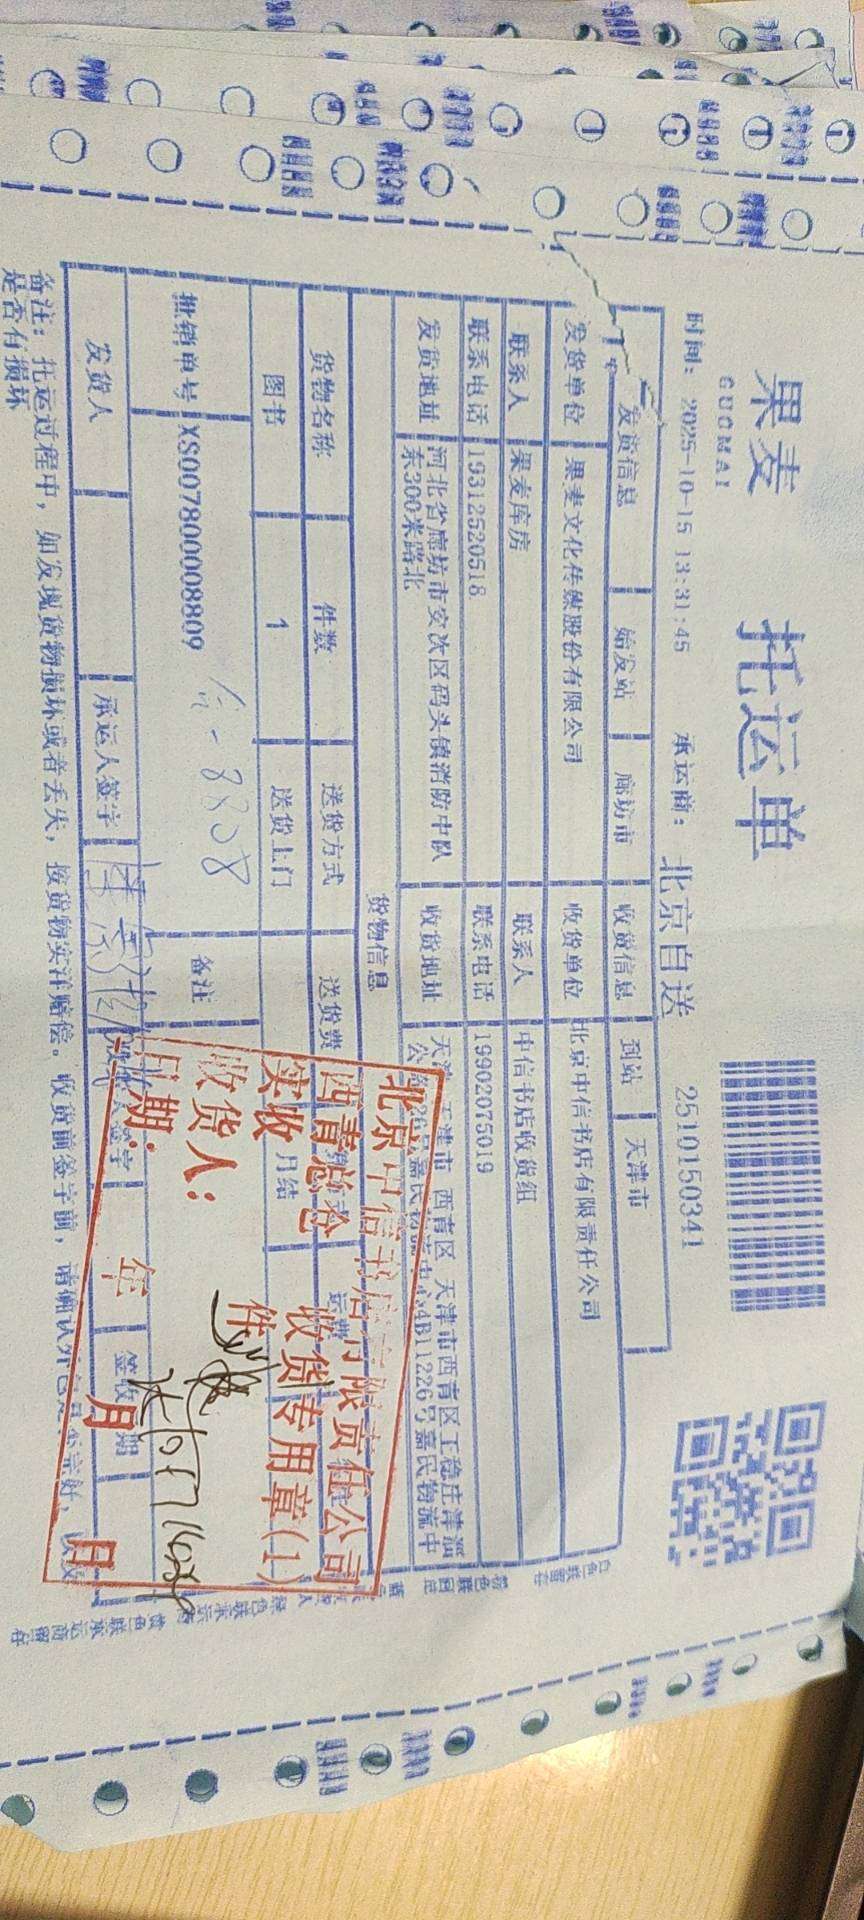 果麦
GUOMAI
托运单
时间: 2025-10-15 13:31:45 承运商: 北京自送 2510150341
发货信息 始发站 廊坊市 收货信息 到站 天津市
发货单位 果麦文化传媒股份有限公司 收货单位 北京中信书店有限责任公司
联系人 果麦库房 联系人 中信书店收货组
联系电话 19312520518 联系电话 19902075019
发货地址 河北省廊坊市安次区码头镇消防中队东300米路北 收货地址 天津 天津市 西青区 天津市西青区王稳庄津淄公 26号嘉民物流中心4B11226号嘉民物流中
货物信息
货物名称 件数 送货方式 送货费 运费
图书 1 送货上门 月结
批销单号 XS007800008809 备注
发货人 承运人签字 签字 签收 期
备注: 托运过程中, 如发现货物损坏或者丢失, 按货物实洋赔偿。收货前签字前, 请确认外包
是否有损坏
北京中信书店有限责任公司
西青总仓 收货专用章(1)
实收 件
收货人:
日期: 年 月 日
白色联留存
粉色联回
绿色联承运
黄色联承运商留存